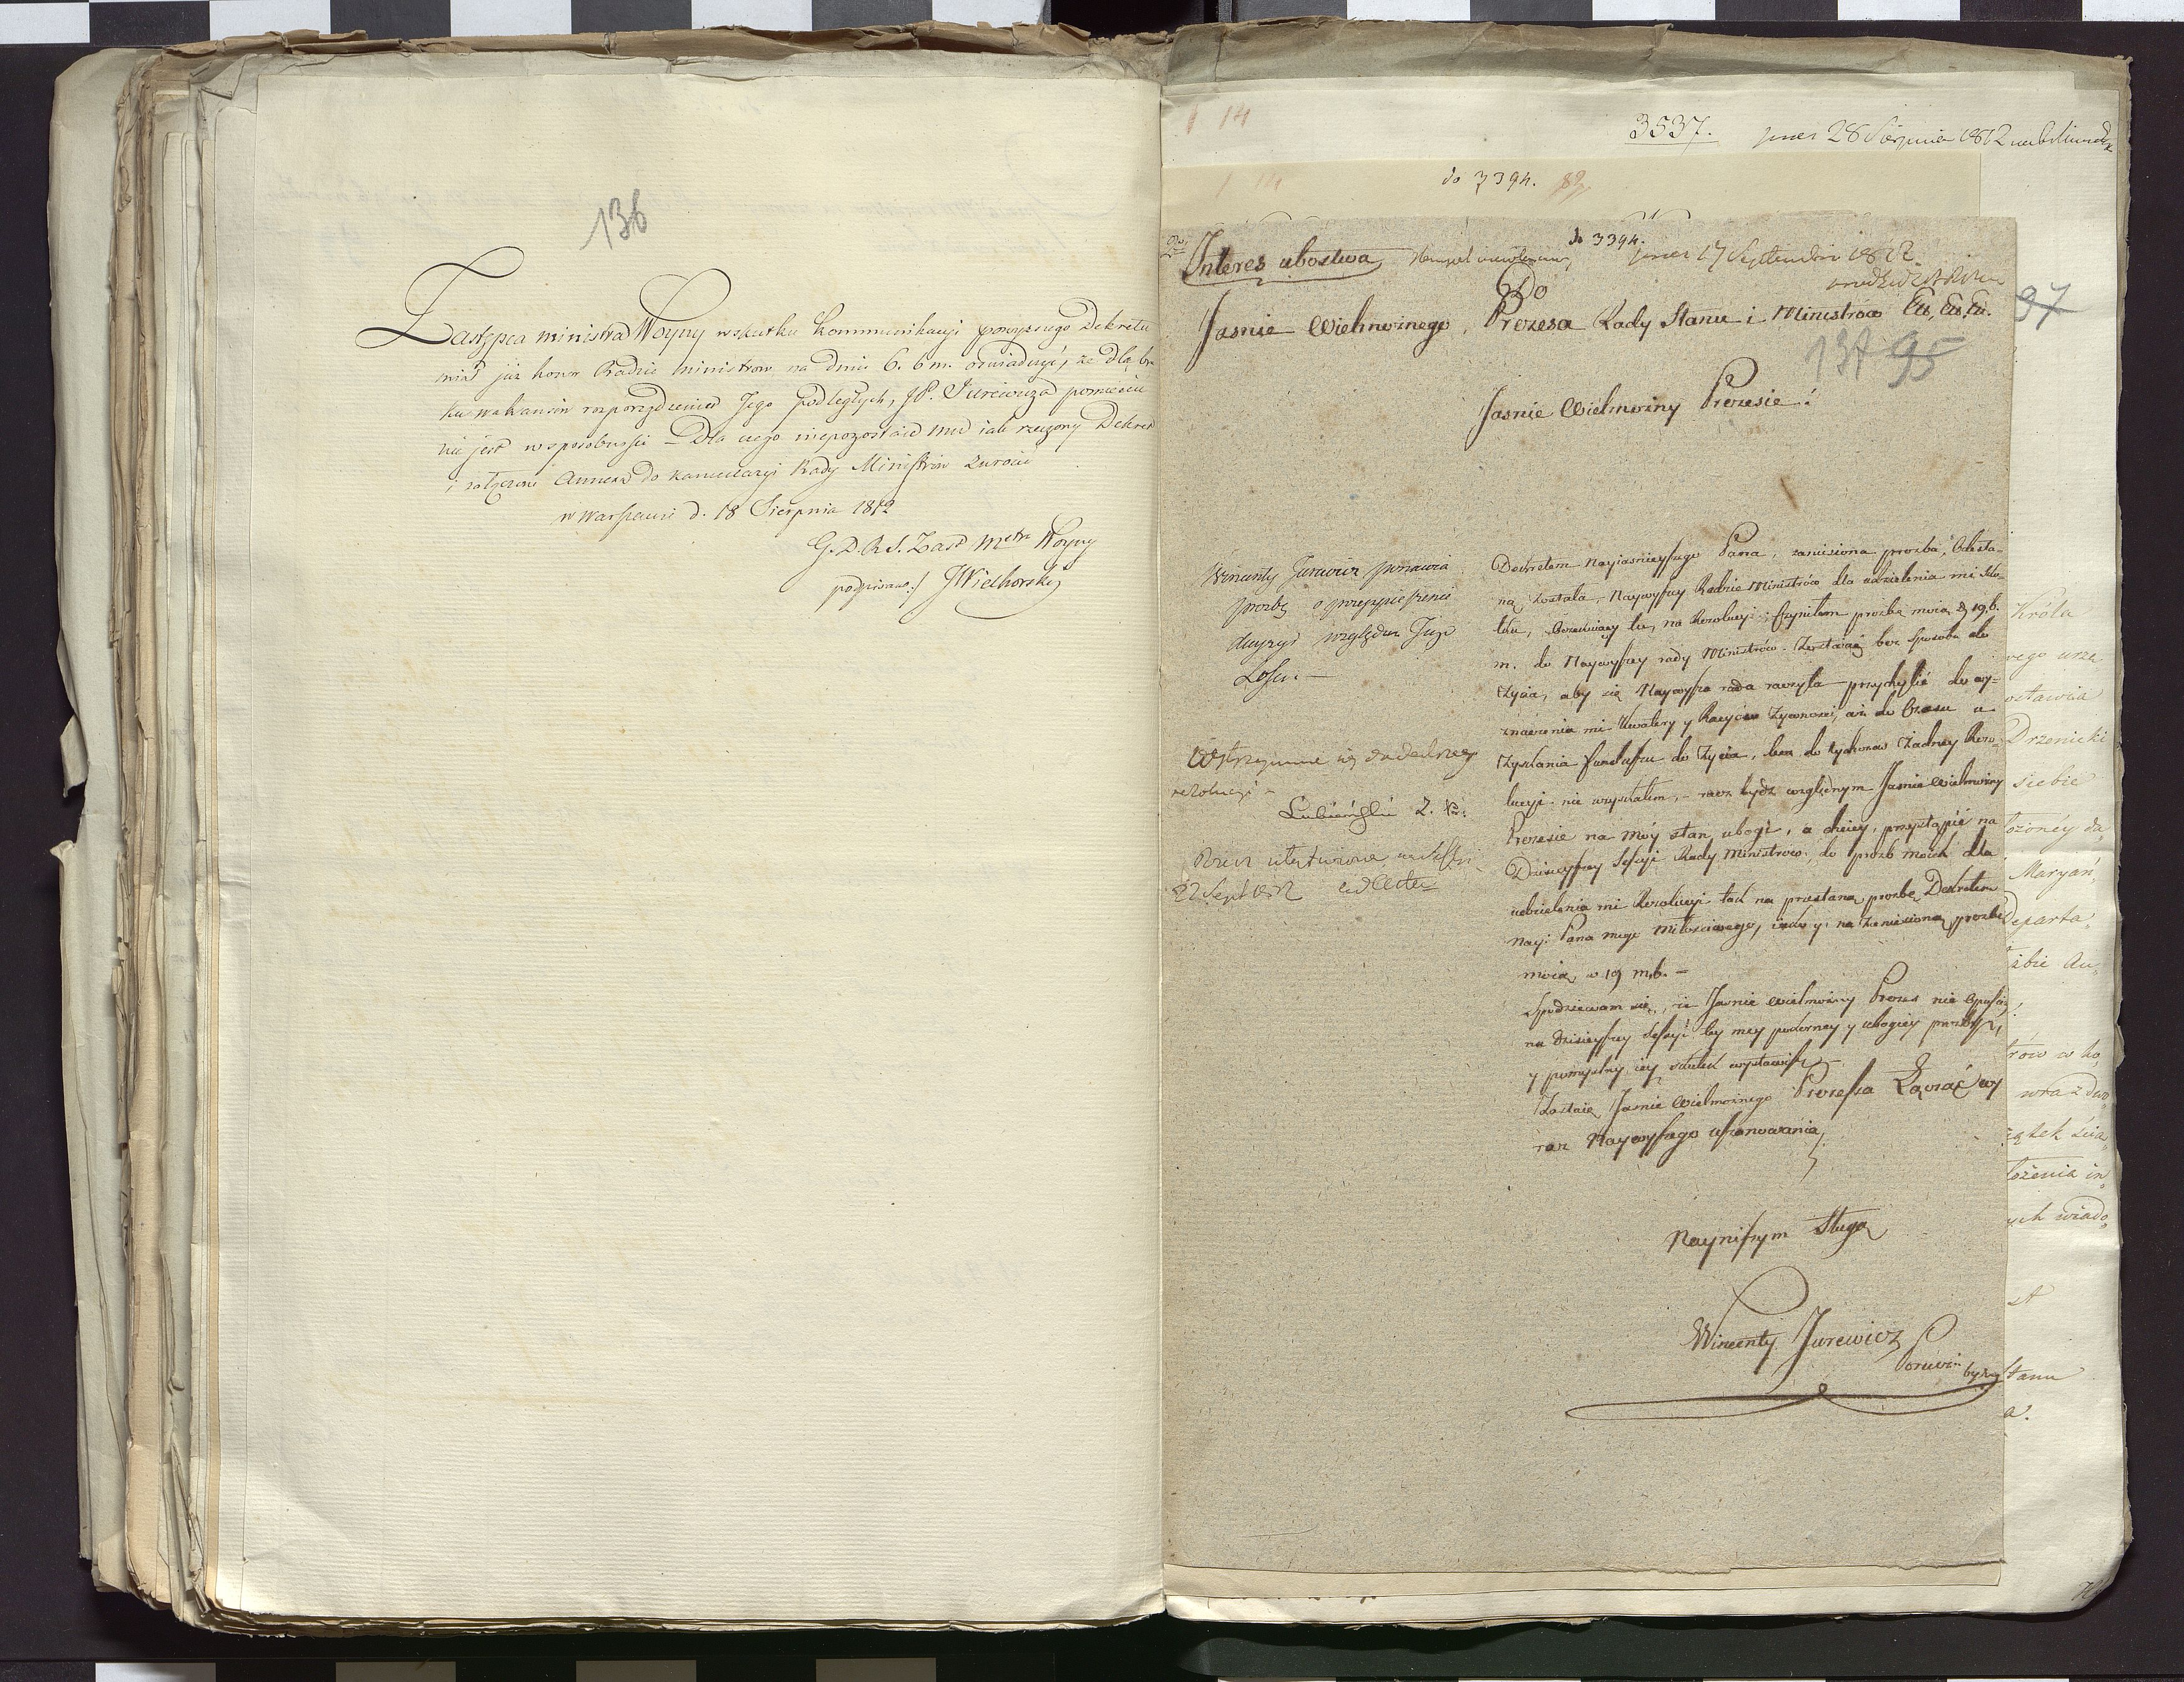 136
Zastępca ministra Woyny w skutku Kommunikacyi powyższego Dekretu
miał już honor Radzie ministrow na dniu 6. b m. oświadczyć, że dla bra
ku wakansów rozporządzeniu Jego podległych, JP. Jurewicza pomieścić
nie jest w sposobności – Dla czego niepozostaie mu iak rzeczony Dekret
i załączone Annexa do kancellaryi Rady Ministrów zwrócić
w Warszawie d. 18 Sierpnia 1812
G. D. R. S. Zast Mstra Woyny
podpisano:/ J Wielhorski
14
3537.
pres 28 Sierpnia 1812
do 3394. 89
do 3394.
Interes ubostwa
pres 17 Septembr 1812.
Do
Jasnie Wielmożnego, Prezesa Rady Stanu i Ministrow &c, &c, &c.
97
137 95
Jasnie Wielmożny Prezesie!
Wincenty Jurewicz ponawia
prozbę o przyspieszenie
decyzyi względem Jego
Losu. –
Wstrzymać się do dalszey
rezolucyi –
Lubieński
22 Sept 1812
Dekretem Nayiasnieyszego Pana, zaniesiona prozba, Odesła-
ną została, Naywyższey Radzie Ministrów dla udzielenia mi
na Rezolucyi; czyniłem prozbę moią d 19. b.
m. do Naywyższey rady Ministrów. Zostaiąc bez sposobu do
życia, aby się Naywyższa rada raczyła przychylić do wy-
znaczenia mi Kwatery y Racyiow żywności, aż do Czasu u
zyskania funduszu do życia, lecz do tychczas żadney Rezo-
lucyi nie uzyskałem, – racz bydź względnym Jasnie Wielmożny
Prezesie na móy stan ubogi, a chciey, przystąpić na
Dzisieyszey Sessyi Rady Ministrow, do prozb moich dla
udzielenia mi Rezolucyi tak na przesłaną prozbę Dekretem
Nay: Pana mego Miłościwego, iako y na zaniesioną prozbę
moią, w 19 m. b. –
Spodziewam się, że Jasnie Wielmożny Prezes nie opuści,
na dzisieyszey Sessyi tey mey pokorney y ubogiey prozby,
y pomyślny iey skutek wystawisz –
Zostaię Jasnie Wielmożnego Prezessa Łącząc wy
raz Naywyższego uszanowania
Nayniższym Sługą
Wincenty Jurewicz
Króla
wego urzę
ostawia
Drzenicki
siebie
łożonéy da„
Maryań„
Departa„
żbie Au„
trów w ko„
wra z dwo„
iątek świa„
łożenia in„
ych wiado„
st
Stanu
a.